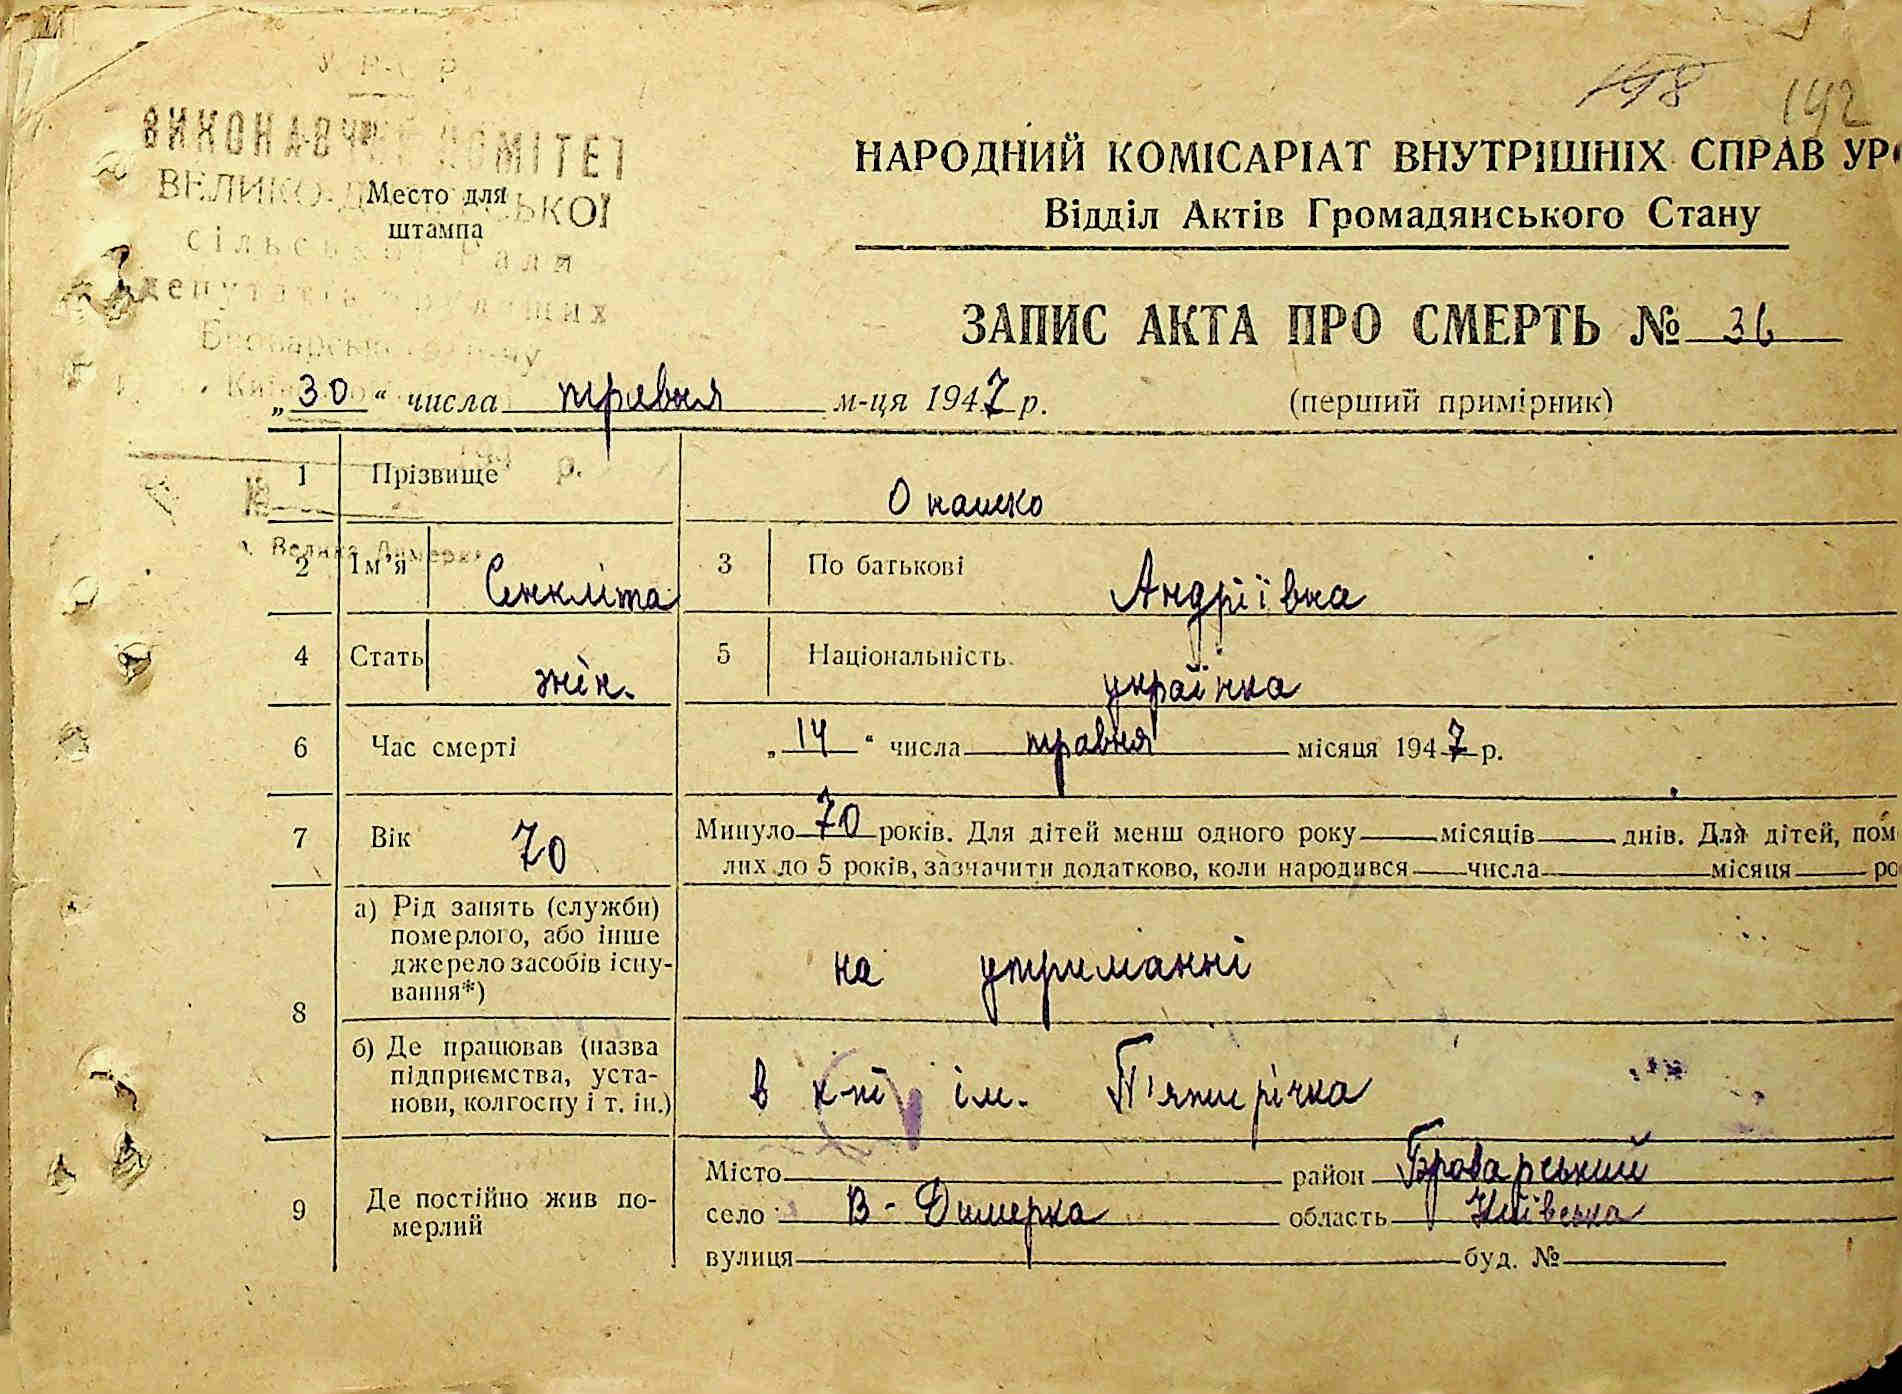 У Р С Р
198 192
ВИКОНАВЧИЙ КОМІТЕТ
НАРОДНИЙ КОМІСАРІАТ ВНУТРІШНІХ СПРАВ УР
Место для
штампа
Відділ Актів Громадянського Стану
ЗАПИС АКТА ПРО СМЕРТЬ № 36
„30“ числа травня м-ця 1947 р. (перший примірник)
1 Прізвище Онашко
2 Ім'я Сенкліта 3 По батькові Андріївна
4 Стать жін. 5 Національність українка
6 Час смерті „14“ числа травня місяця 1947 р.
7 Вік 70 Минуло 70 років. Для дітей менш одного року місяців днів. Для дітей, пом
лих до 5 років, зазначити додатково, коли народився числа місяця ро
8 а) Рід занять (служби)
померлого, або інше
джерело засобів існу-
вання*)
на утриманні
б) Де працював (назва
підприємства, уста-
нови, колгоспу і т. ін.)
в к-ті ім. П'ятирічка
9 Де постійно жив по-
мерлий
Місто район Броварський
село В-Димерка область Київська
вулиця буд. №